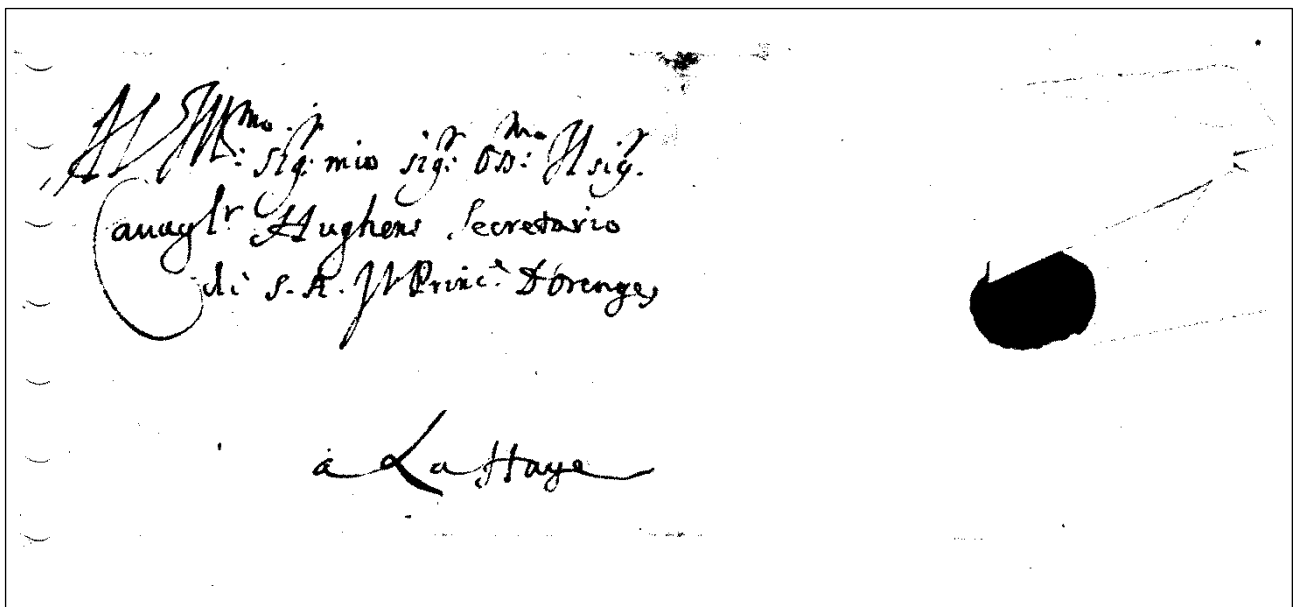 All Ill.mo: sig.r: mio sig.r: oss.mo: Il sig.r
Cauagl.r Hughens Secretario
di S. A. Il Princ.e D'Orenges
à La Haye